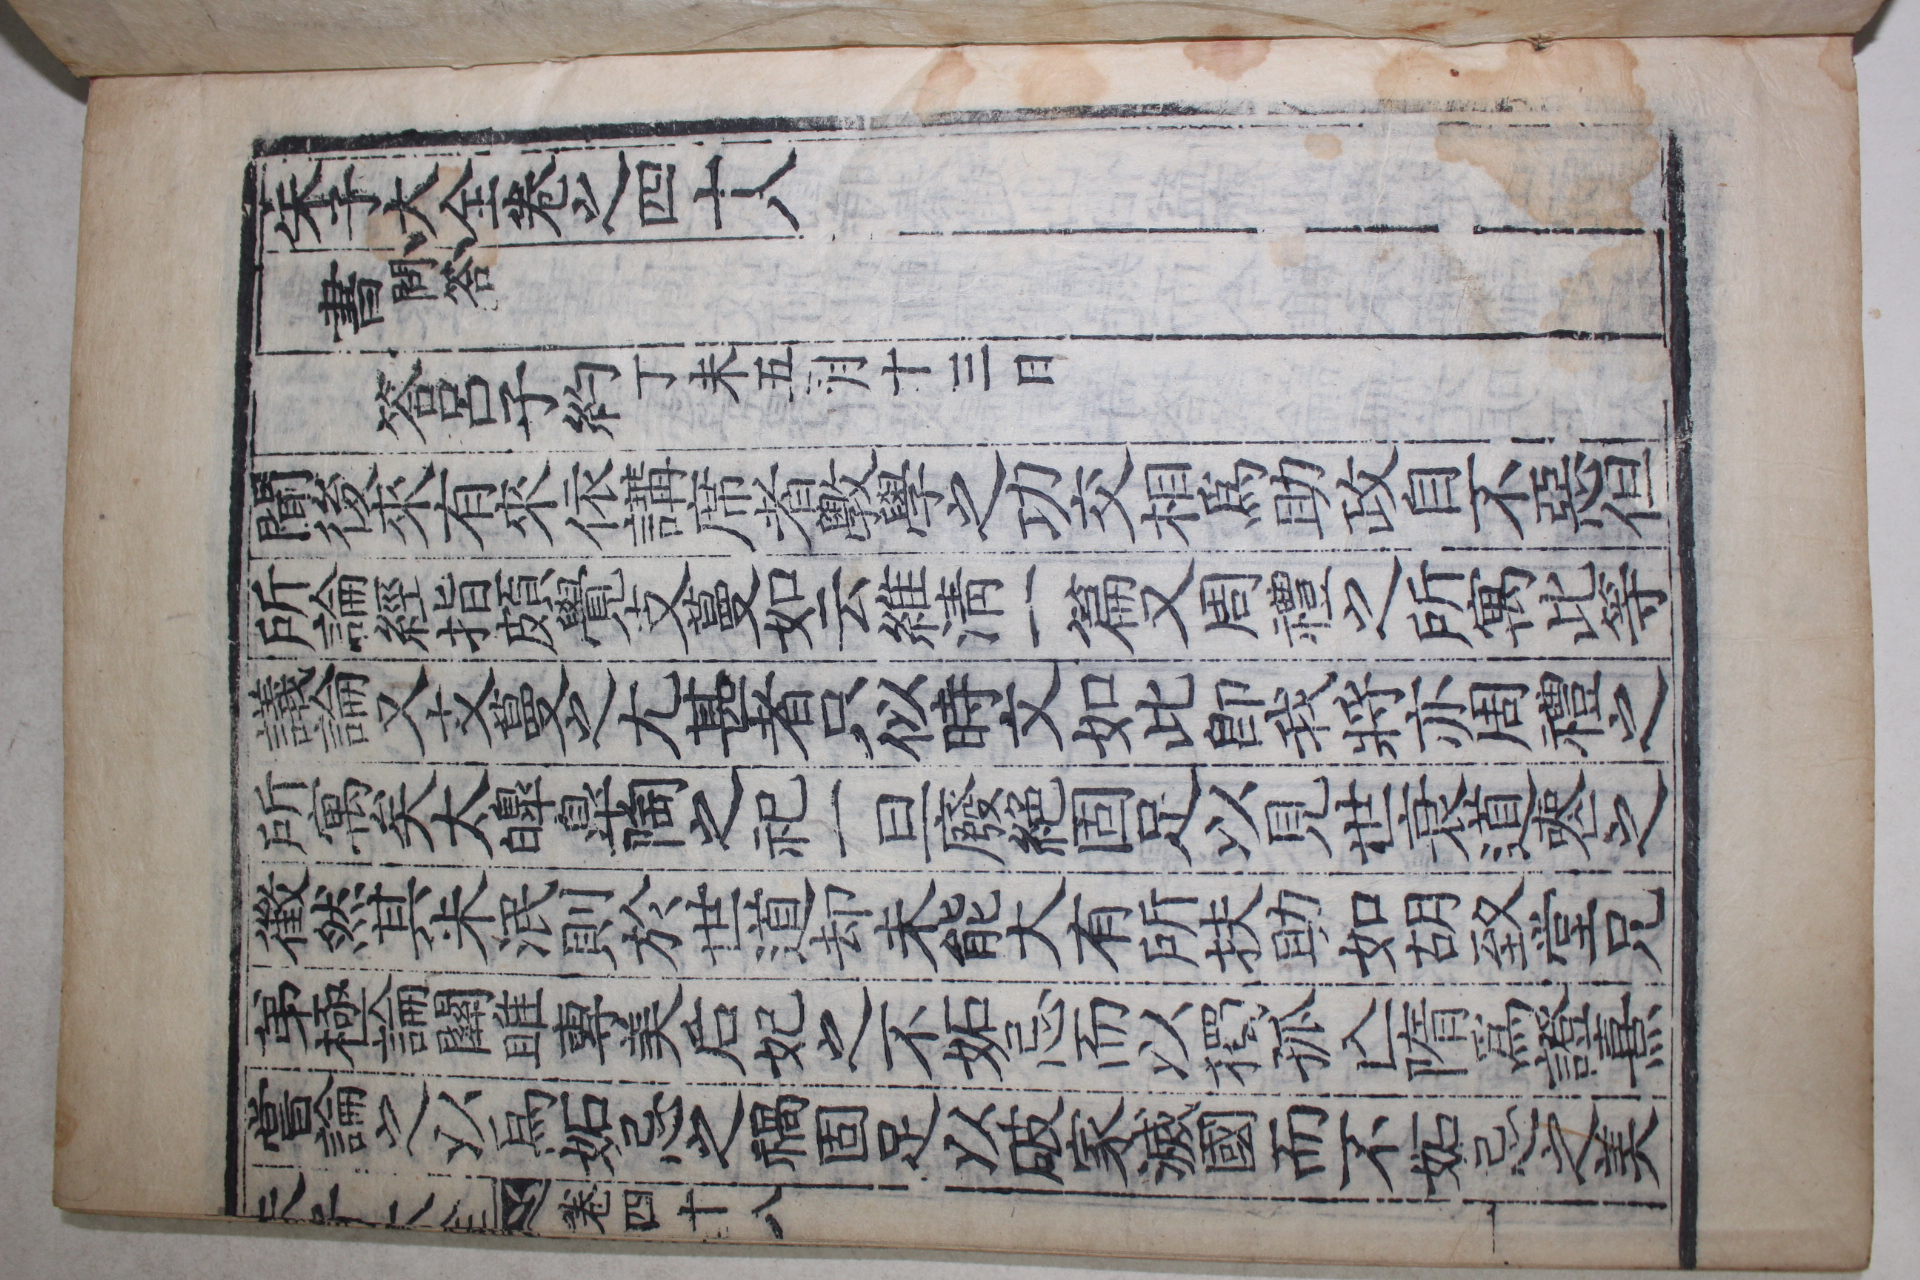 朱子大全卷之四十八
書問答
答呂子約丁未五月十三日
聞後來有來依講席者斅學之功交相爲助政自不惡但
所論經指頗覺支蔓如云維淸一篇又周禮之所寓此等
議論又支蔓之尤甚者只似時文如此卽我將亦周禮之
所寓矣大之祀一旦廢絶固足以見世衰道喪之
徵然其未泯則於世道却未能大有所扶助如胡致堂兄
弟極論關雎專美后妃之不妬忌而以獨孤亡隋爲證熹
嘗論之以爲妬忌之禍固足以破家滅國而不妬忌之美
朱子大全 卷四十八